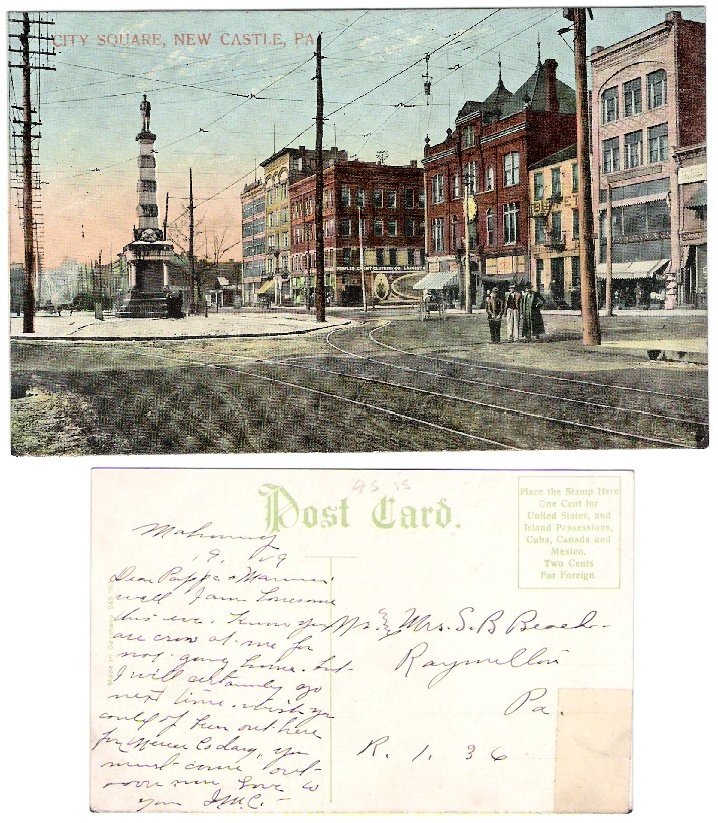 CITY SQUARE, NEW CASTLE, PA.
PEOPLES CREDIT CLOTHING CO.
AS 15
Post Card.
Place the Stamp Here
One Cent for
United States, and
Island Possessions,
Cuba, Canada and
Mexico.
Two Cents
For Foreign.
Made in Germany
Mahoning
Dear Pappa & Mamma
well I am lonesome
this eve. know you
are cross at me for
not going home. but
I will certainly go
next time. wish you
could of been out here
for Mercer Co day, you
must come out
soon now love to
you
Mr. & Mrs. S. B.
Raymilton
Pa.
R. 1. 36